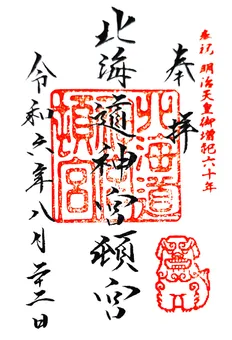 奉祝 明治天皇御増祀六十年
奉拝
北海道神宮頓宮
北海道神宮頓宮
令和六年八月二十二日